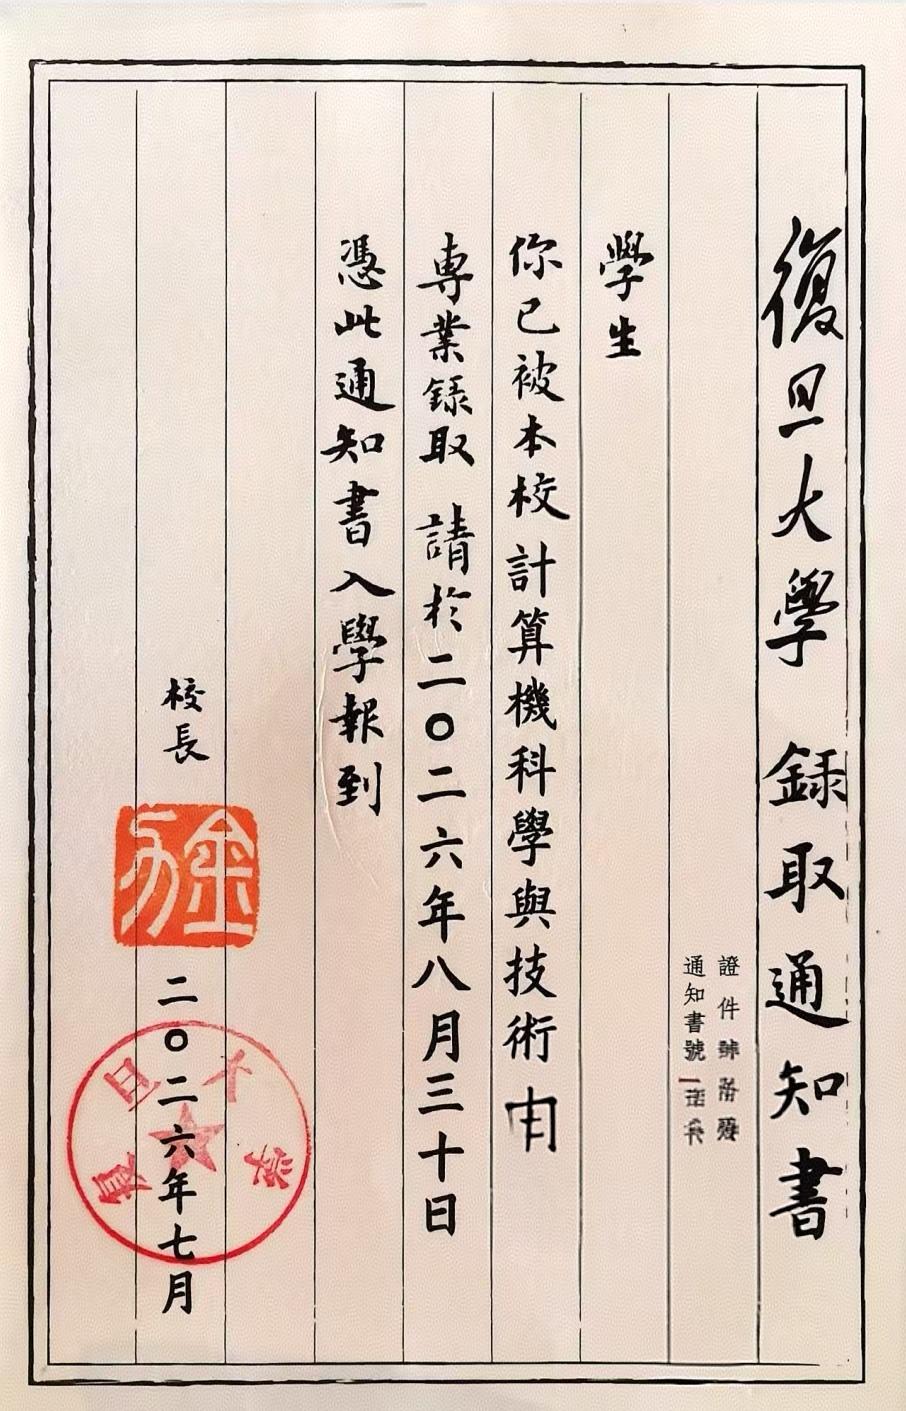 復旦大學 錄取通知書
證件
通知書號
學生
你已被本校計算機科學與技術
專業錄取 請於二〇二六年八月三十日
憑此通知書入學報到
校長
二〇二六年七月
復旦大学